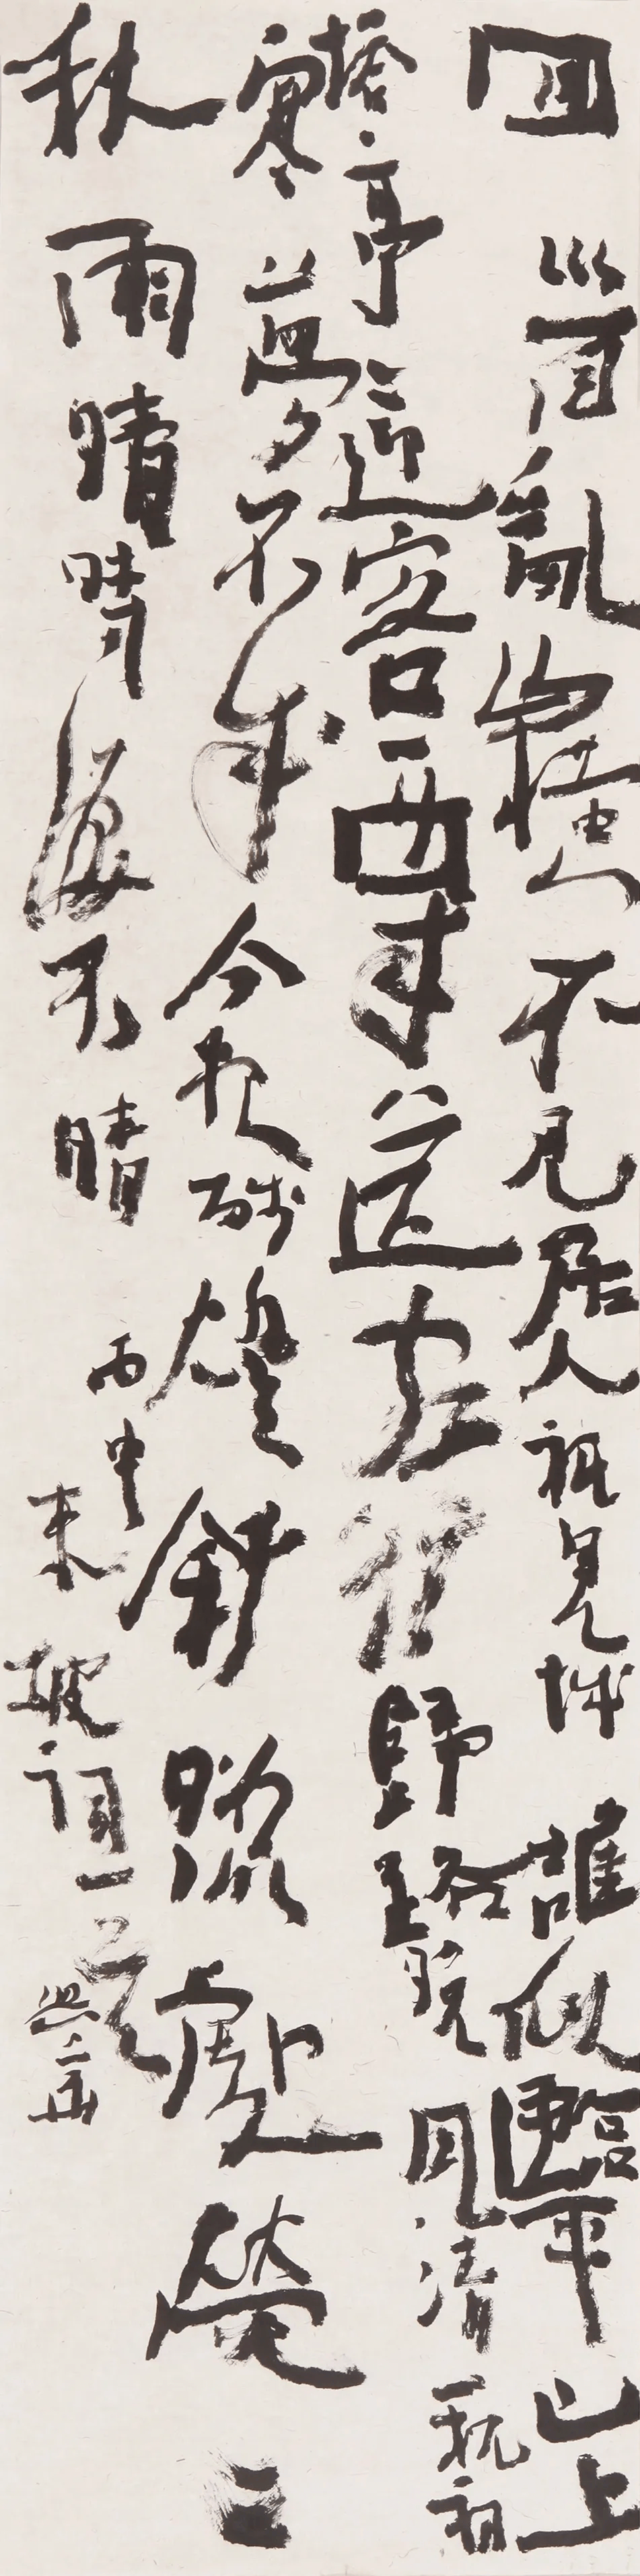 回首亂山橫不見居人祇見城誰似臨平山上
塔亭〻迎客西來送客行歸路晚風清一枕初
寒夢不成今夜殘燈斜照處熒〻
秋雨晴時淚不晴
丙申
東坡詞一首